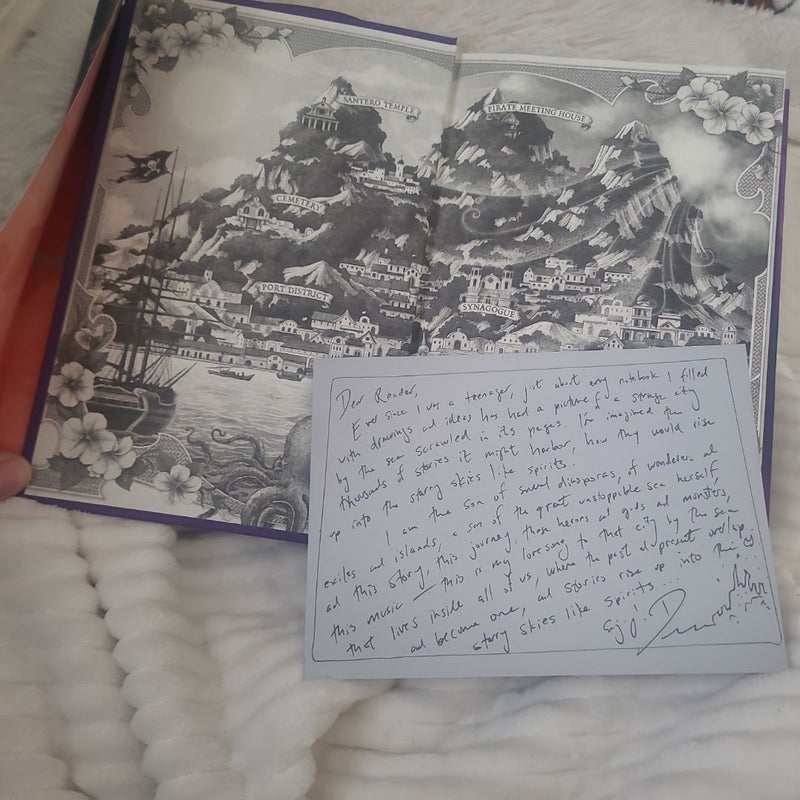 SANTERO TEMPLE
PIRATE MEETING HOUSE
CEMETERY
PORT DISTRICT
SYNAGOGUE
Dear Reader,
Ever since I was a teenager, just about every notebook I filled
with drawings and ideas has had a picture of a strange city
by the sea scrawled in its pages. I've imagined the
thousands of stories it might harbor, how they would rise
up into the starry skies like spirits.
I am the son of several diasporas, of wanderers and
exiles and islands, a son of the great unstoppable sea herself,
and this story, this journey, these heroes and gods and monsters,
this music — this is my lovesong to that city by the sea
that lives inside all of us, where the past and present overlap
and become one, and stories rise up into the
starry skies like spirits...
Enjoy!